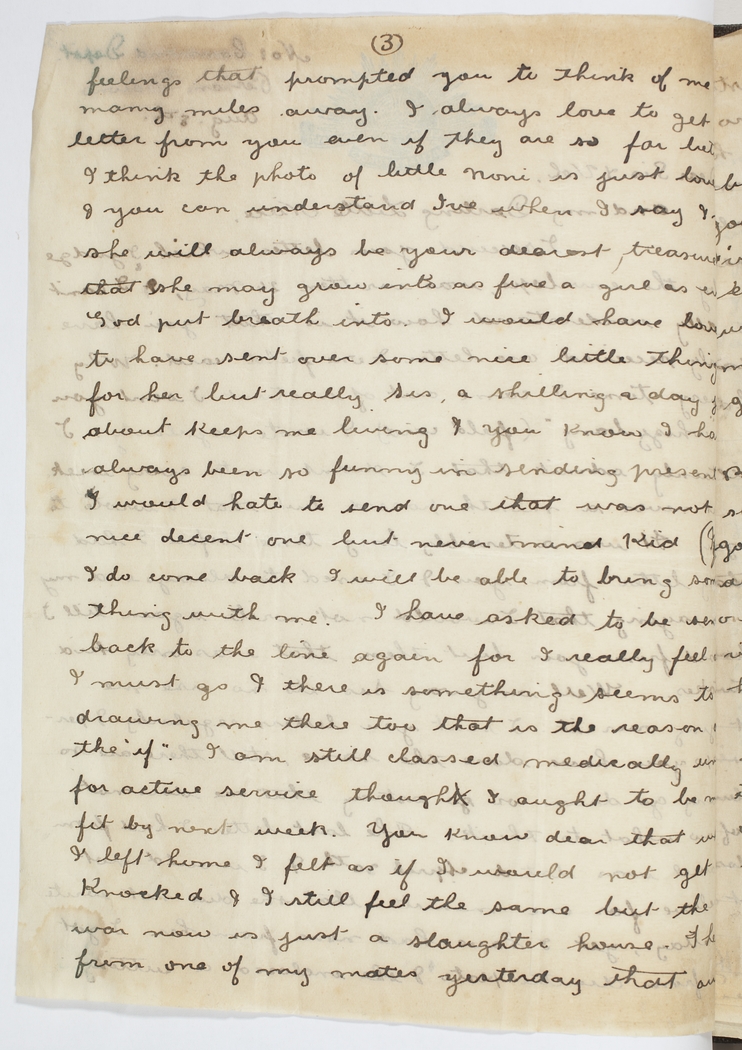 (3)
feelings that prompted you to think of me
many miles away. I always love to get
letter from you even if they are so far bet
I think the photo of little Noni is just
& you can understand I've when I say
she will always be your dearest, treasure
that she may grow into as fine a girl as
God put breath into. I would have
to have sent over some nice little thing
for her but really Sis, a shilling a day
about keeps me living & you know I ha
always been so funny in sending present
I would hate to send one that was not
nice decent one but never mind Kid (If
I do come back I will be able to bring som
thing with me. I have asked to be sen
back to the line again for I really feel
I must go & there is something seems to
drawing me there too that is the reason
the "if". I am still classed medically un
for active service though I aught to be
fit by next week. You know dear that
I left home I felt as if I would not get
Knocked & I still feel the same but the
war now is just a slaughter house. I h
from one of my mates yesterday that